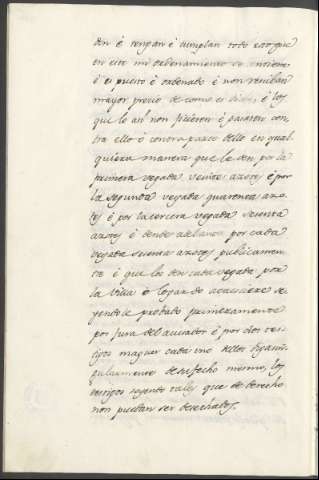 den é tengan é cumplan todo esto que
en este mi ordenamiento se contiene
é es puesto é ordenado é non reciban
mayor precio de como es dicho, é los
que lo así non ficieren é pasaren con
tra ello é contra parte dello en qual
quiera manera que le den por la
primera vegada veinte azotes é por
la segunda vegada quarenta azo
tes é por la tercera vegada sesenta
azotes é dende adelante por cada
vegada sesenta azotes publicamen
te é que los den cada vegada por
la Villa ó logar do acaesciere se
yendole probado primeramente
por jura del acusador é por dos tes
tigos maguer cada uno dellos diga sin
gularmente de su fecho mesmo, los
testigos seyendo tales que de derecho
non puedan ser desechados.